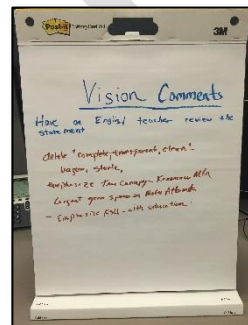 Post-it
3M
Vision Comments
Have an English teacher review the
statement
delete "complete, transparent, clean" -
vague, sterile,
emphasize Tree Canopy,
largest green space in Metro Atlanta
- Emphasize KSU - with education